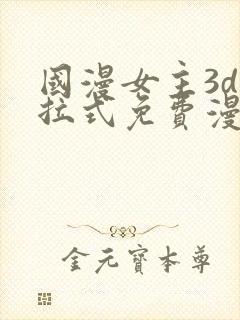 國漫女主3d
拉式免費漫
金元寶本尊